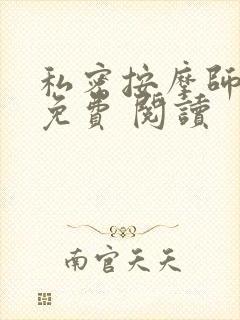 私密按摩師
免費 閱讀
南官天天